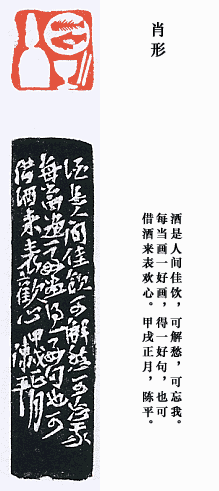 肖形
酒是人间佳饮，可解愁，可忘我。
每当画一好画，得一好句，也可
借酒来表欢心。甲戌正月，陈平。
酒是人间佳饮可解愁可忘我
每當画一好画得一好句也可
借酒来表歡心甲戌正月陳平